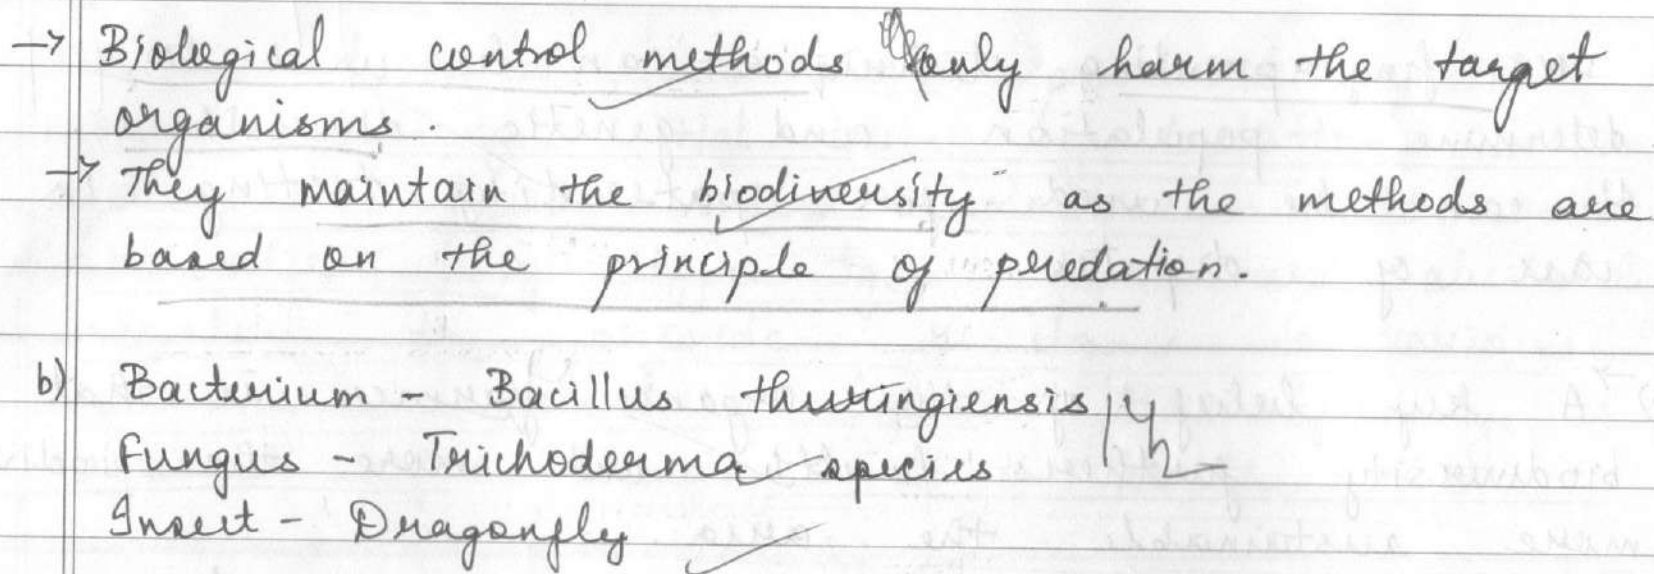 → Biological control methods only harm the target
organisms.
→ They maintain the biodiversity as the methods are
based on the principle of predation.
b) Bacterium - Bacillus thuringiensis
Fungus - Trichoderma species
Insect - Dragonfly